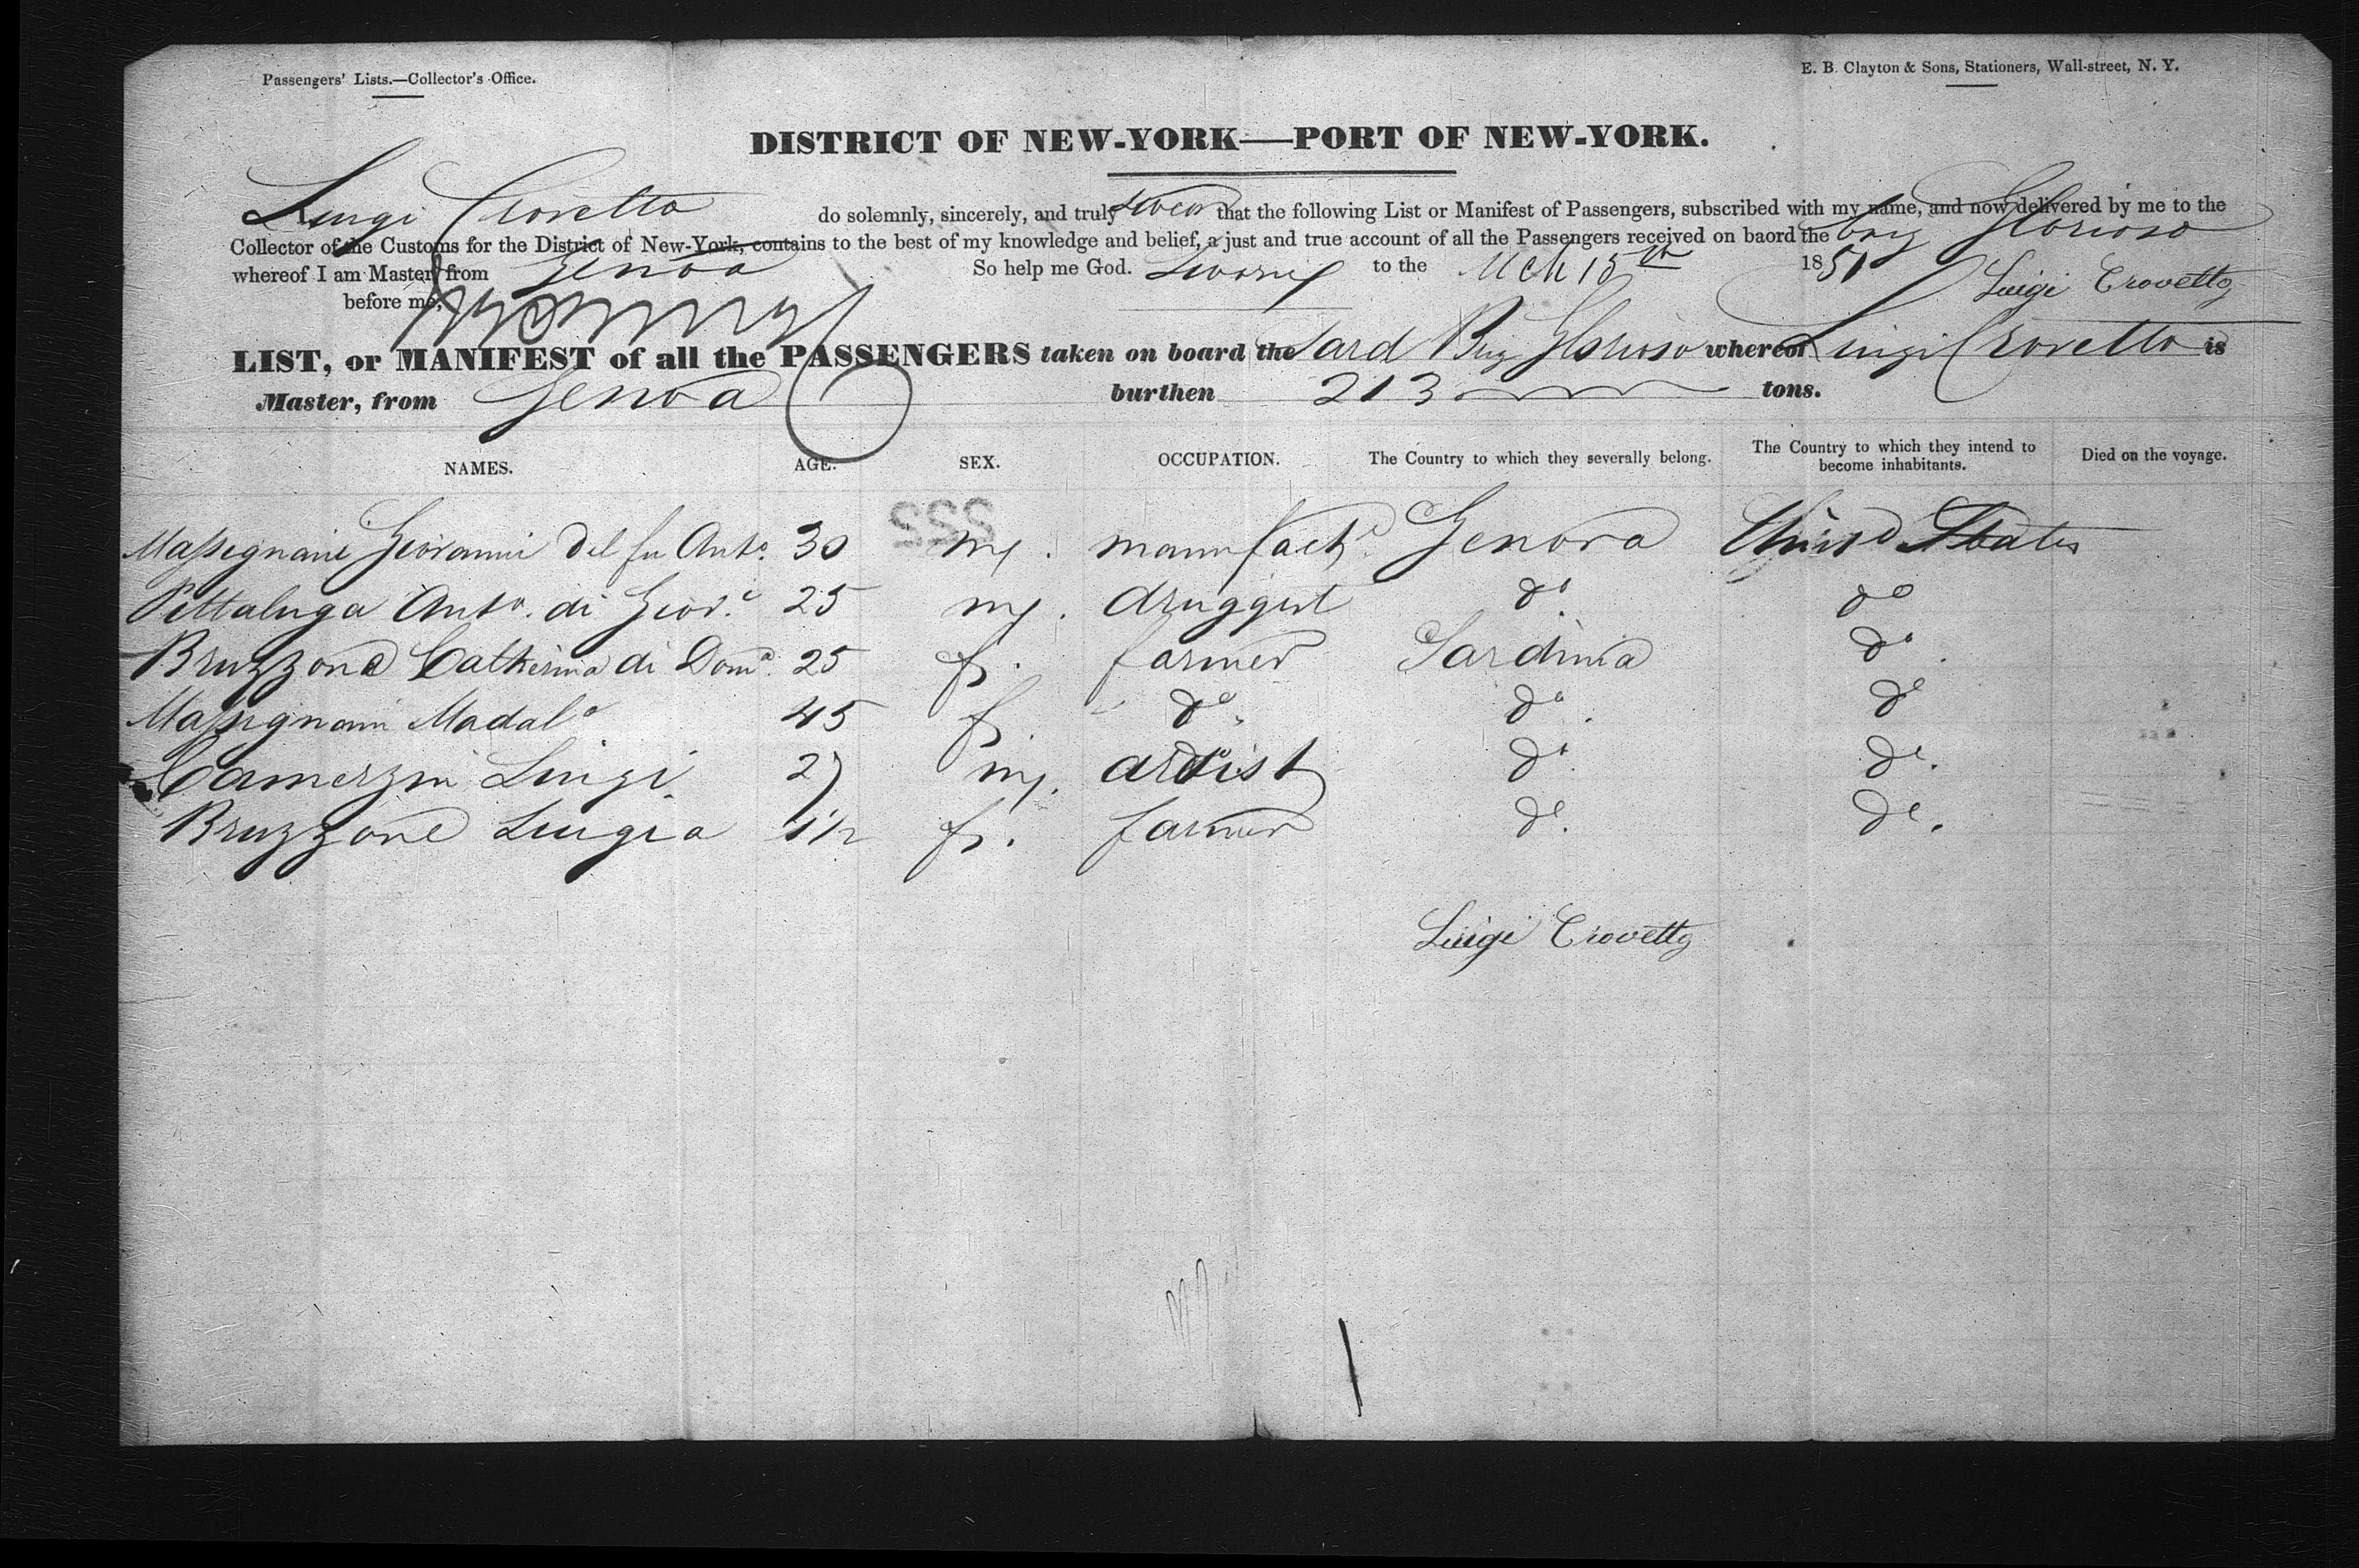 Passengers' Lists.—Collector's Office.
E. B. Clayton & Sons, Stationers, Wall-street, N. Y.
DISTRICT OF NEW-YORK—PORT OF NEW-YORK.
Luigi Crovetto do solemnly, sincerely, and truly swear that the following List or Manifest of Passengers, subscribed with my name, and now delivered by me to the
Collector of the Customs for the District of New-York, contains to the best of my knowledge and belief, a just and true account of all the Passengers received on baord the brig Glorioso
whereof I am Master, from Genoa So help me God. Sworn to the Mch 15th 1851 Luigi Crovetto
before me,
LIST, or MANIFEST of all the PASSENGERS taken on board the Sard Brig Glorioso whereof Luigi Crovetto is
Master, from Genoa burthen 213 tons.
NAMES. AGE. SEX. OCCUPATION. The Country to which they severally belong. The Country to which they intend to become inhabitants. Died on the voyage.
222
Massignani Giovanni del fu Anto. 30 m. manufactr. Genova United States
Pittaluga Anto. di Giov. 25 m. druggist do. do
Bruzzone Catherina di Domo. 25 f. farmer Sardinia do.
Massignani Madala 45 f. do. do. do
Camerzin Luigi 27 m. artist do. do.
Bruzzone Luigia 1½ f. farmer do. do.
Luigi Crovetto